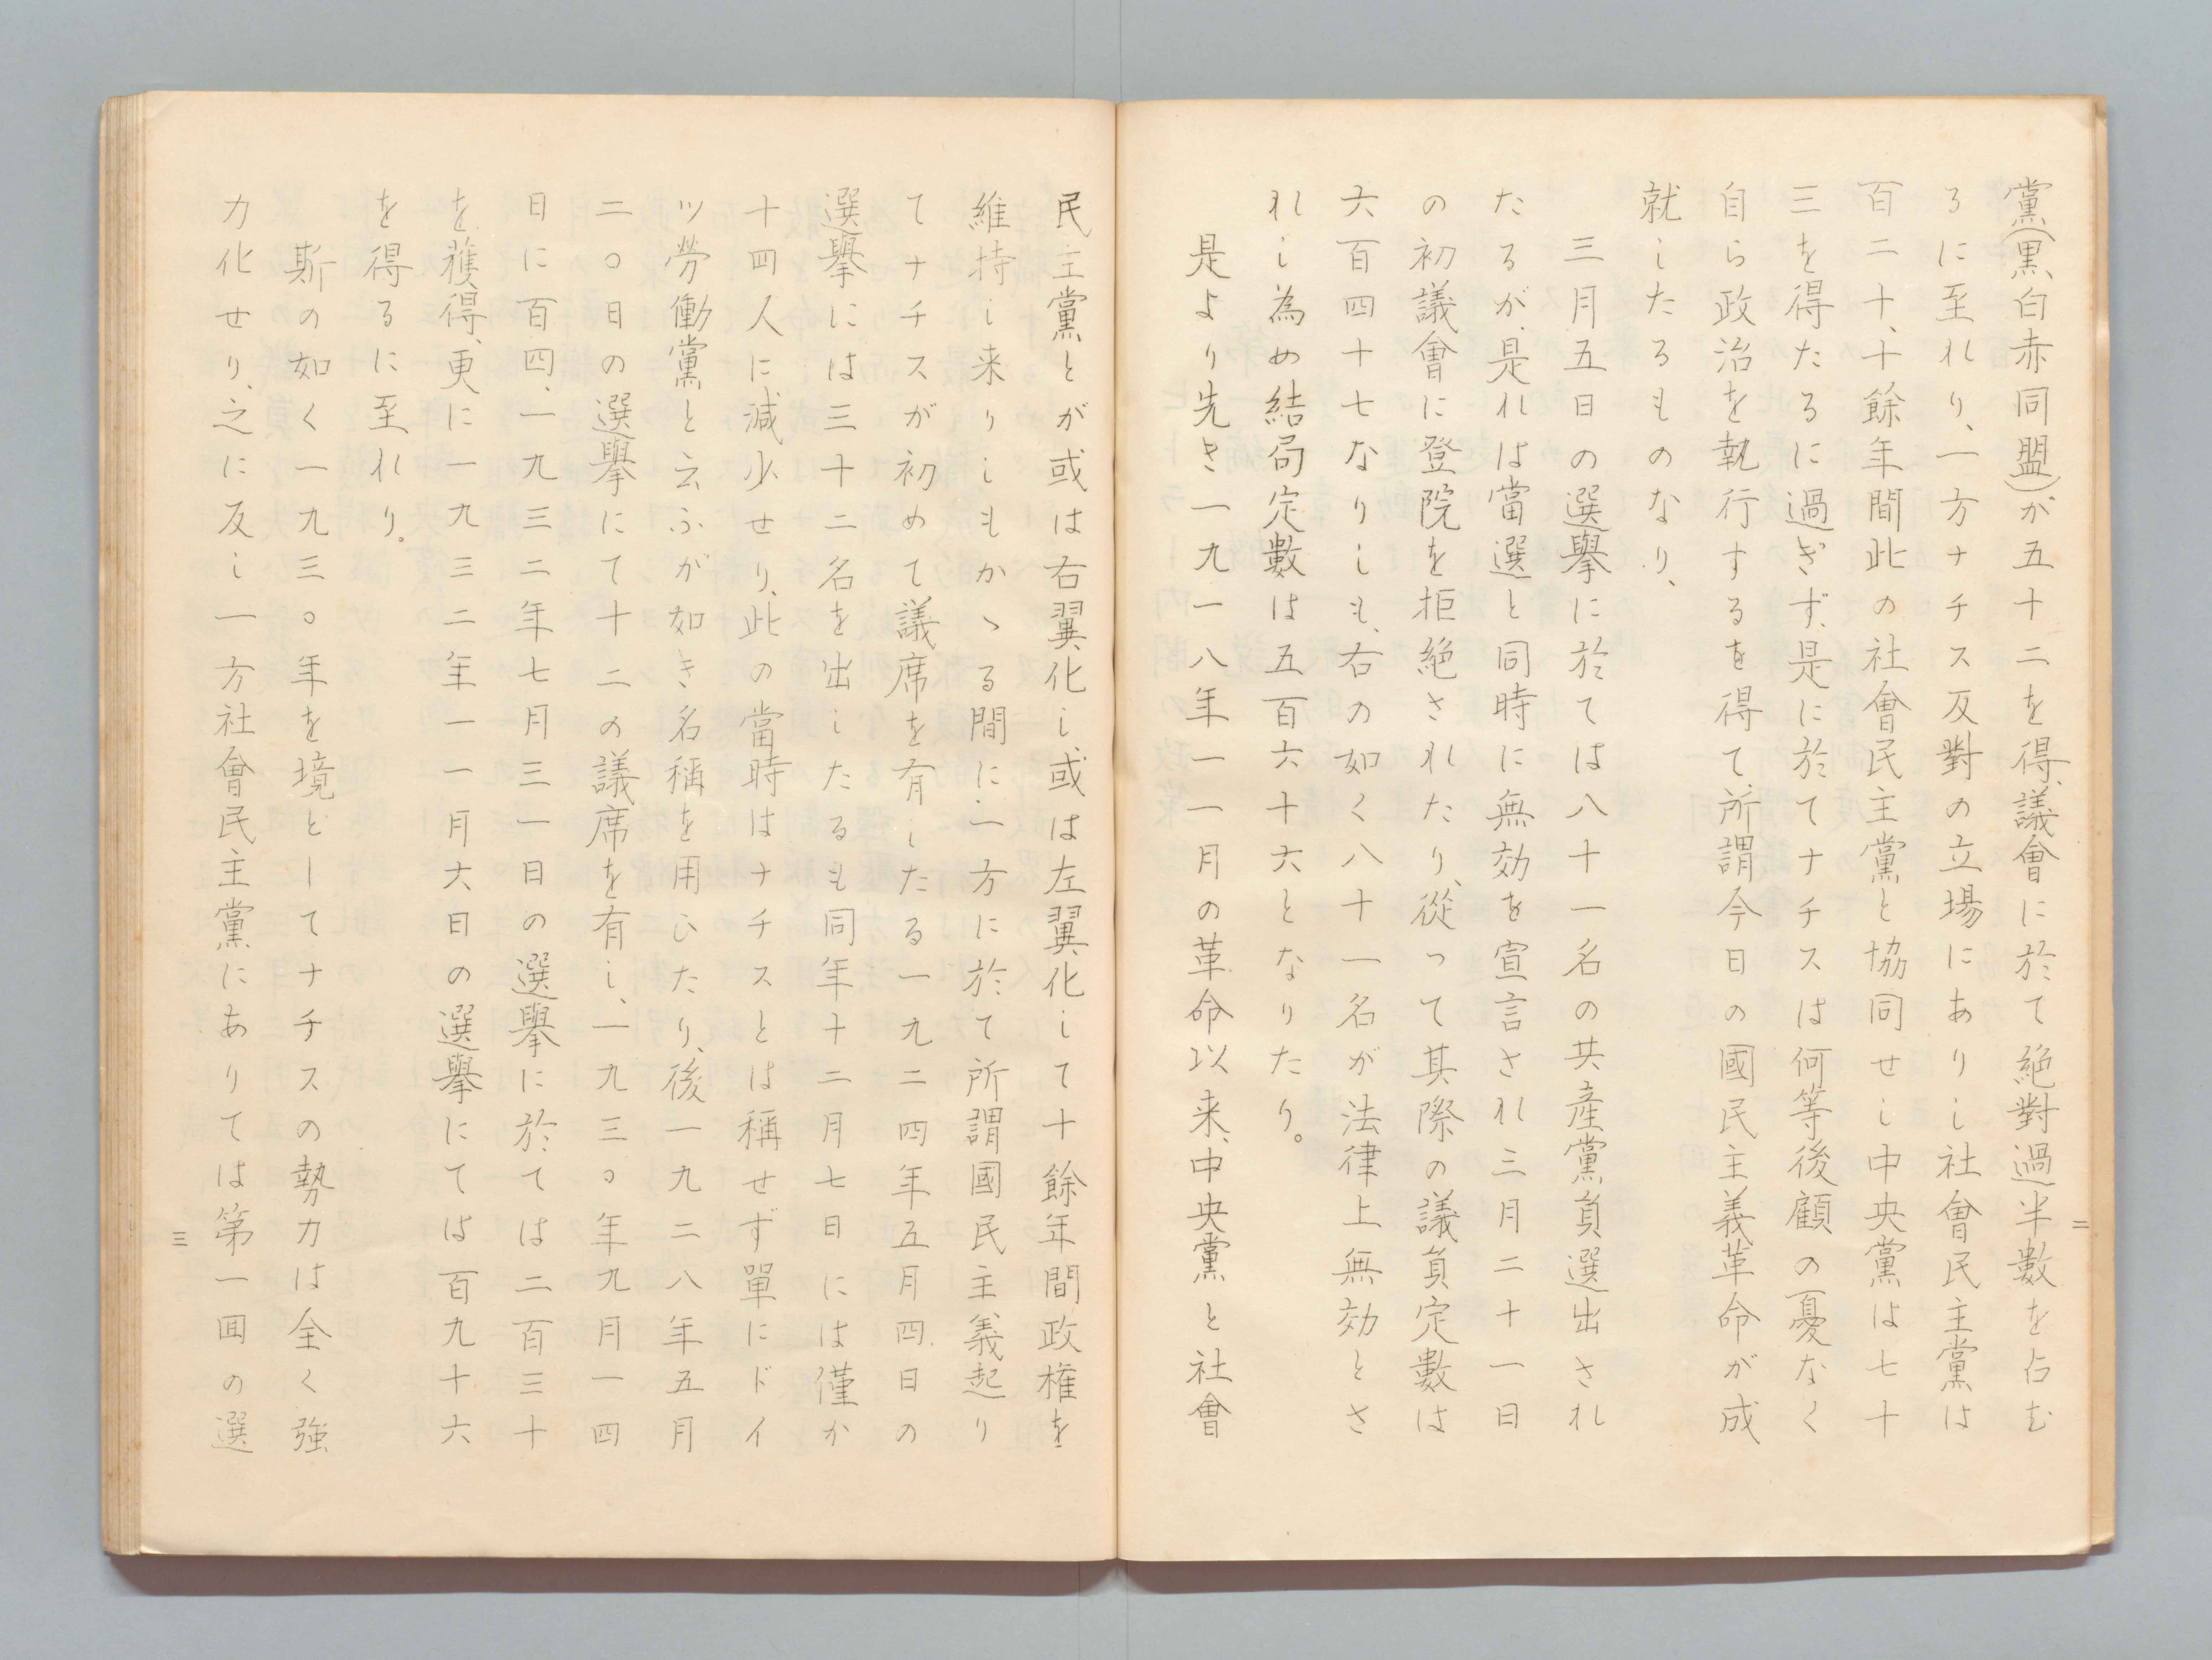 黨(黒白赤同盟)が五十二を得、議會に於て絶對過半數を占む
るに至れり、一方ナチス反對の立場にありし社會民主黨は
百二十、十餘年間此の社會民主黨と協同せし中央黨は七十
三を得たるに過ぎず、是に於てナチスは何等後顧の憂なく
自ら政治を執行するを得て、所謂今日の國民主義革命が成
就したるものなり、
三月五日の選擧に於ては八十一名の共産黨員選出され
たるが、是れは當選と同時に無効を宣言され三月二十一日
の初議會に登院を拒絶されたり、從って其際の議員定數は
六百四十七なりしも、右の如く八十一名が法律上無効とさ
れし為め結局定數は五百六十六となりたり。
是より先き一九一八年一一月の革命以来、中央黨と社會
二
民主黨とが或は右翼化し或は左翼化して十餘年間政権を
維持し来りしもかゝる間に、一方に於て所謂國民主義起り
てナチスが初めて議席を有したる一九二四年五月四日の
選擧には三十二名を出したるも同年十二月七日には僅か
十四人に減少せり、此の當時はナチスとは稱せず單にドイ
ツ勞働黨と云ふが如き名稱を用ひたり、後一九二八年五月
二〇日の選擧にて十二の議席を有し、一九三〇年九月一四
日に百四、一九三二年七月三一日の選擧に於ては二百三十
を獲得、更に一九三二年一一月六日の選擧にては百九十六
を得るに至れり。
斯の如く一九三〇年を境としてナチスの勢力は全く強
力化せり、之に反し一方社會民主黨にありては第一囬の選
三